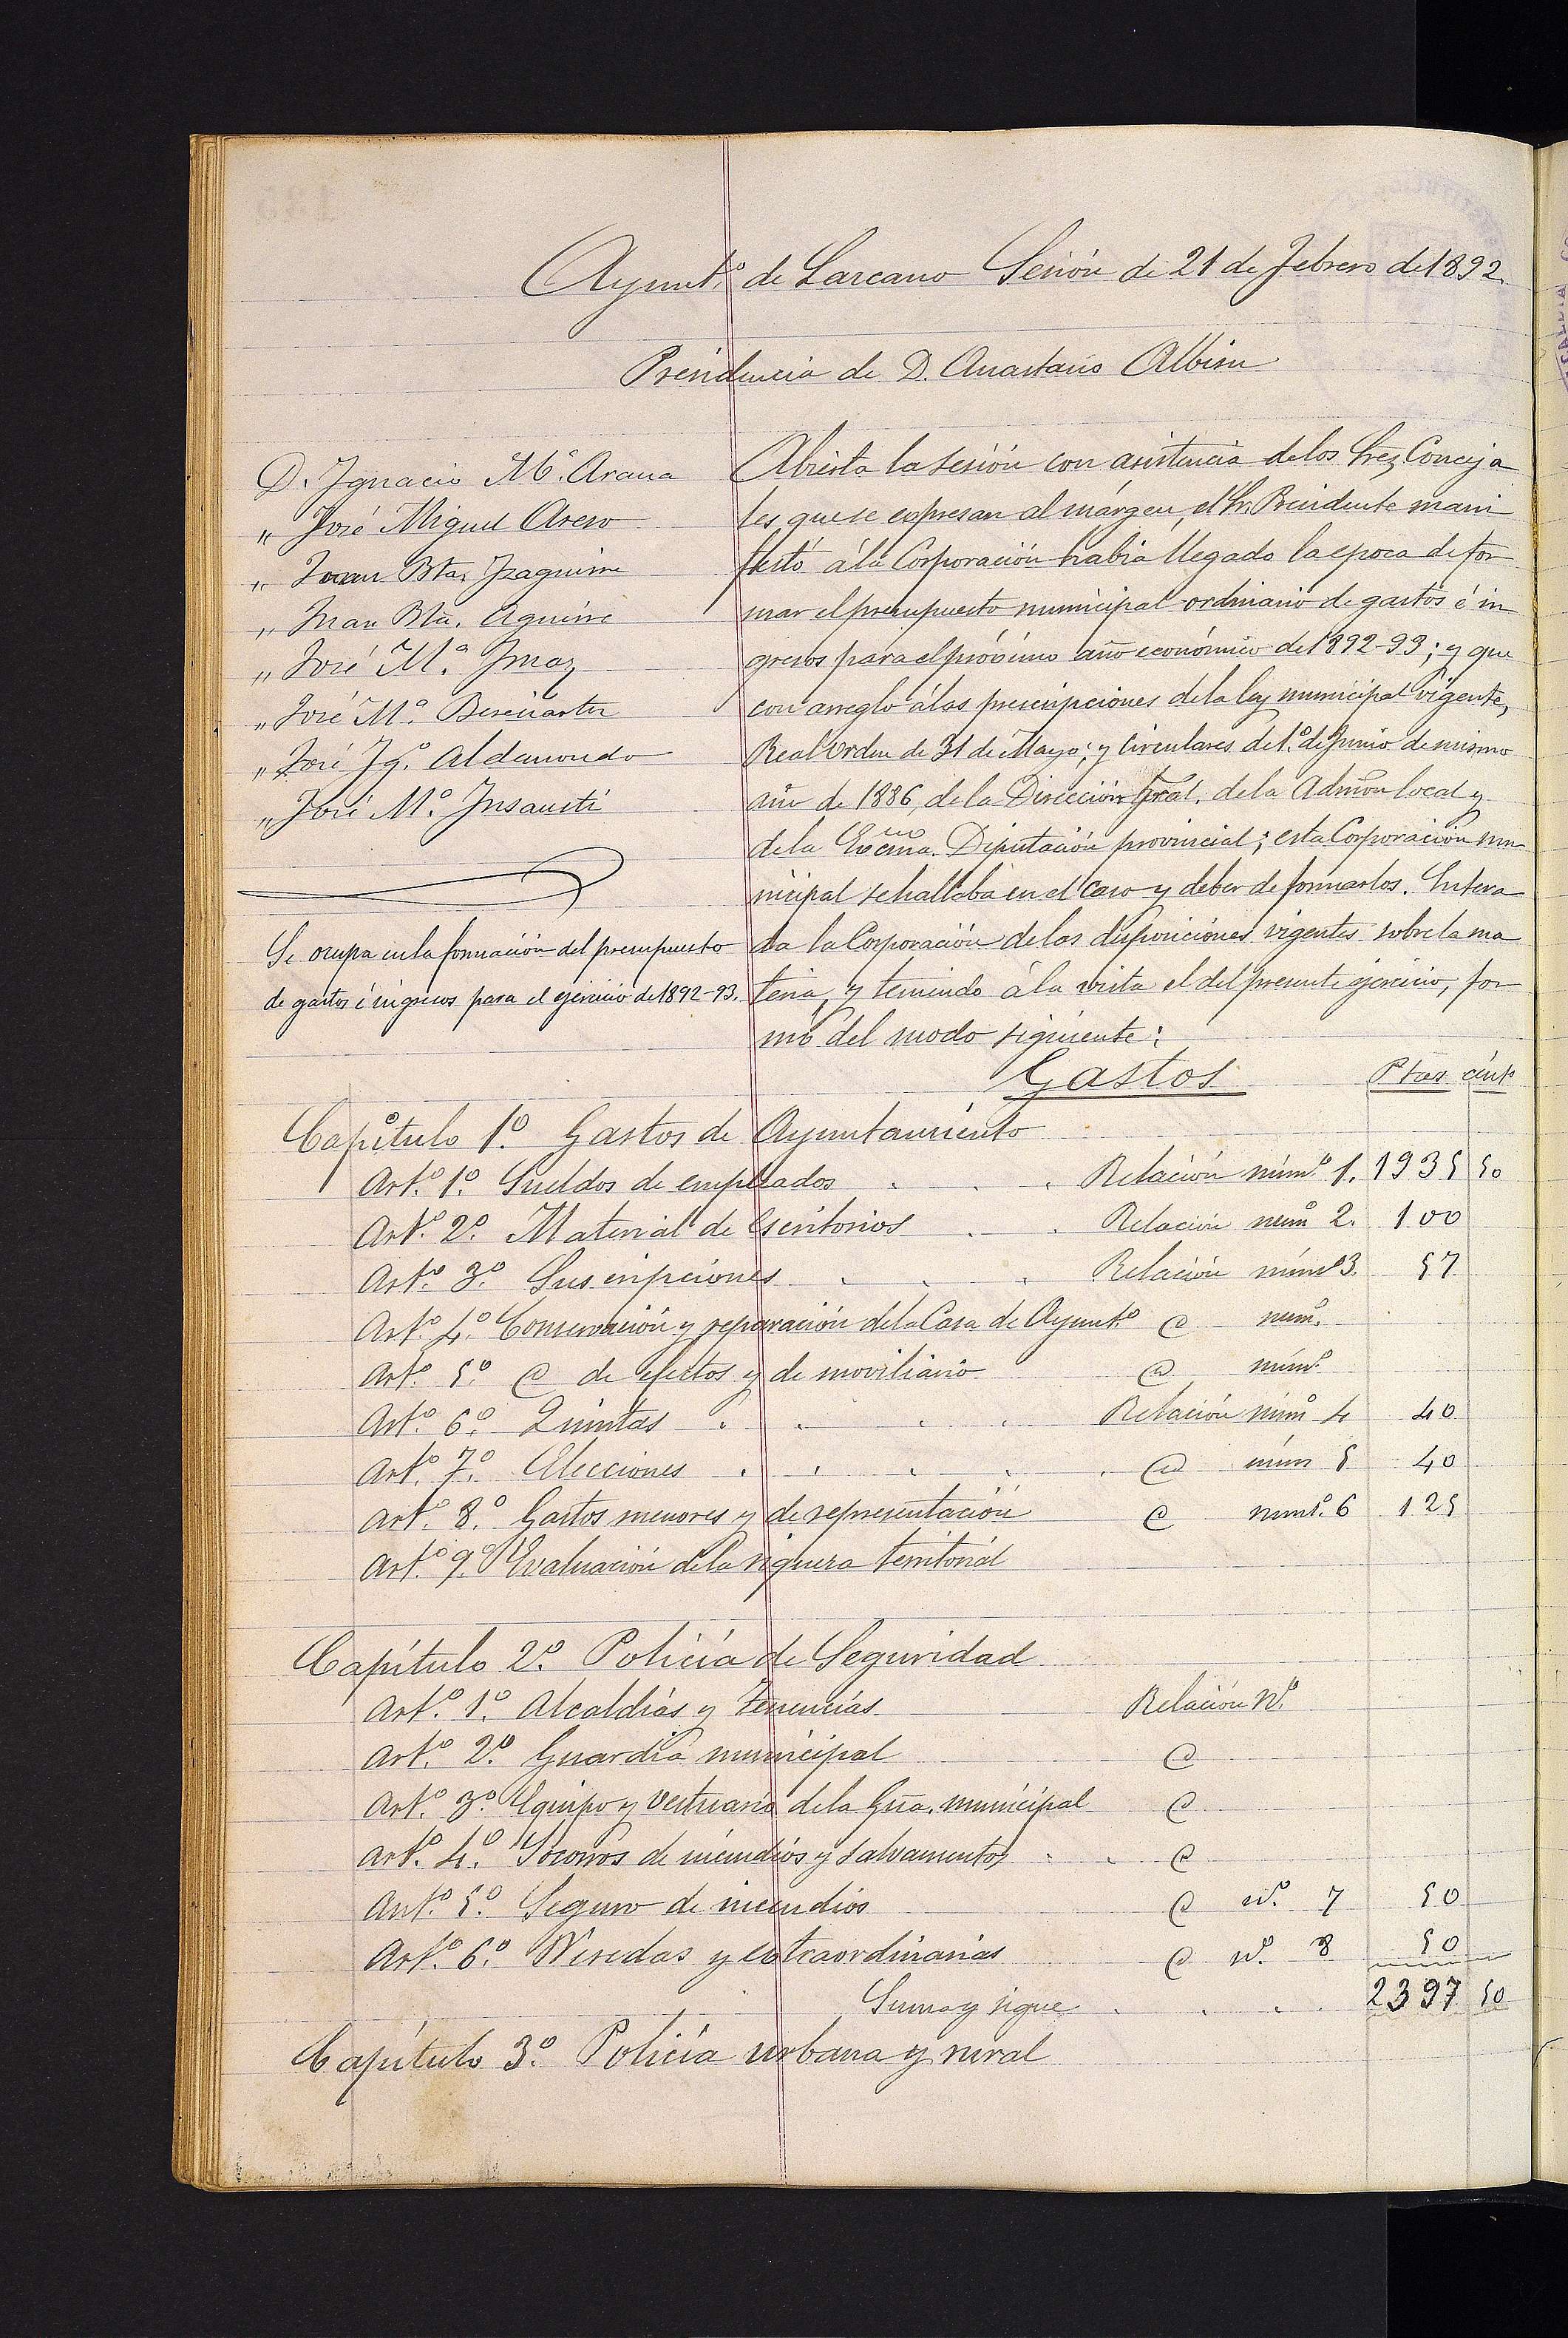 Ayuntº de Lazcano Sesión de 21 de Febrero de 1892.
Presidencia de D. Anastasio Albisu
D. Ignacio Mª. Arana
„ José Miguel Aseso
„ Juan Bta. Izaguirre
„ Juan Bta. Aguirre
„ José Mª. Imaz
„ José Mª. Besiñartu
„ José Igº. Aldamondo
„ José Mª. Insausti
Se ocupa en la formación del presupuesto
de gastos é ingresos para el ejercicio de 1892-93.
Abierta la sesión con asistencia de los Sres Conceja
les que se expresan al márgen, el Sr. Presidente mani
festó á la Corporación había llegado la epoca de for
mar el presupuesto municipal ordinario de gastos é in
gresos para el próximo año económico de 1892-93; y que
con arreglo á las prescripciones de la ley municipal vigente,
Real orden de 31 de Mayo; y Circulares de 1º. de Junio de mismo
año de 1886, de la Dirección Gral. de la Admón local y
de la Excma. Diputación provincial; esta Corporación mu
nicipal se hallaba en el caso y deber de formarlos. Entera
da la Corporación de las disposiciones vigentes sobre la ma
teria, y teniendo á la vista el del presente ejercicio, for
mó del modo siguiente:
Gastos Ptas cénts
Capítulo 1º. Gastos de Ayuntamiento
Artº. 1º. Sueldos de empleados . . . Relación númº 1. 1935 50
Artº. 2º. Material de Escritorios . . Relación númº 2. 100
Artº. 3º. Suscripciones . . . Relación númº 3. 57
Artº. 4º. Conservación y reparación de la Casa de Ayuntº @ númº.
Artº. 5º. @ de efectos y de moviliario @ númº
Artº. 6º. Quintas . . . . Relación númº 4 40
Artº. 7º. Elecciones . . . . . @ núm 5 40
Artº. 8º. Gastos menores y de representación @ númº. 6 125
Artº. 9º. Evaluación de la riquera territorial
Capítulo 2º. Policía de Seguridad
Artº. 1º. Alcaldías y Tenencias. Relación Nº.
Artº. 2º. Guardia municipal @
Artº. 3º. Equipo y vestuario de la Gúa. municipal @
Artº. 4º. Socorros de incendios y salvamentos . . @
Artº. 5º. Seguro de incendios @ nº. 7 50
Artº. 6º. Veredas y extraordinarias @ nº. 8 50
Suma y sigue . . . 2397 50
Capítulo 3º. Policía urbana y rural